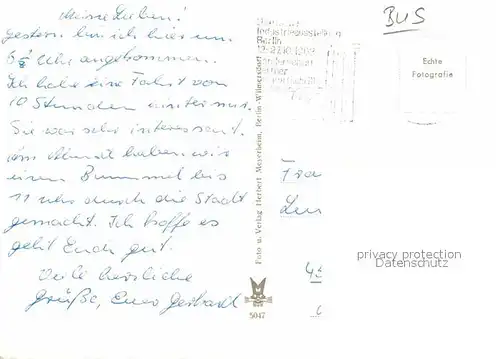 Meine Lieben!
Gestern bin ich hier um
6 Uhr angekommen.
Ich habe eine Fahrt von
10 Stunden hinter mir.
Sie war sehr interessant.
Am Abend haben wir
einen Bummel bis
11 Uhr durch die Stadt
gemacht. Ich hoffe es
geht Euch gut.
Viele herzliche
Grüße, Euer Gerhard
Foto u. Verlag Herbert Meyerheim, Berlin-Wilmersdorf
5047
Industrieausstellung
Berlin
BUS
Echte
Fotografie
Fra
privacy protection
Datenschutz